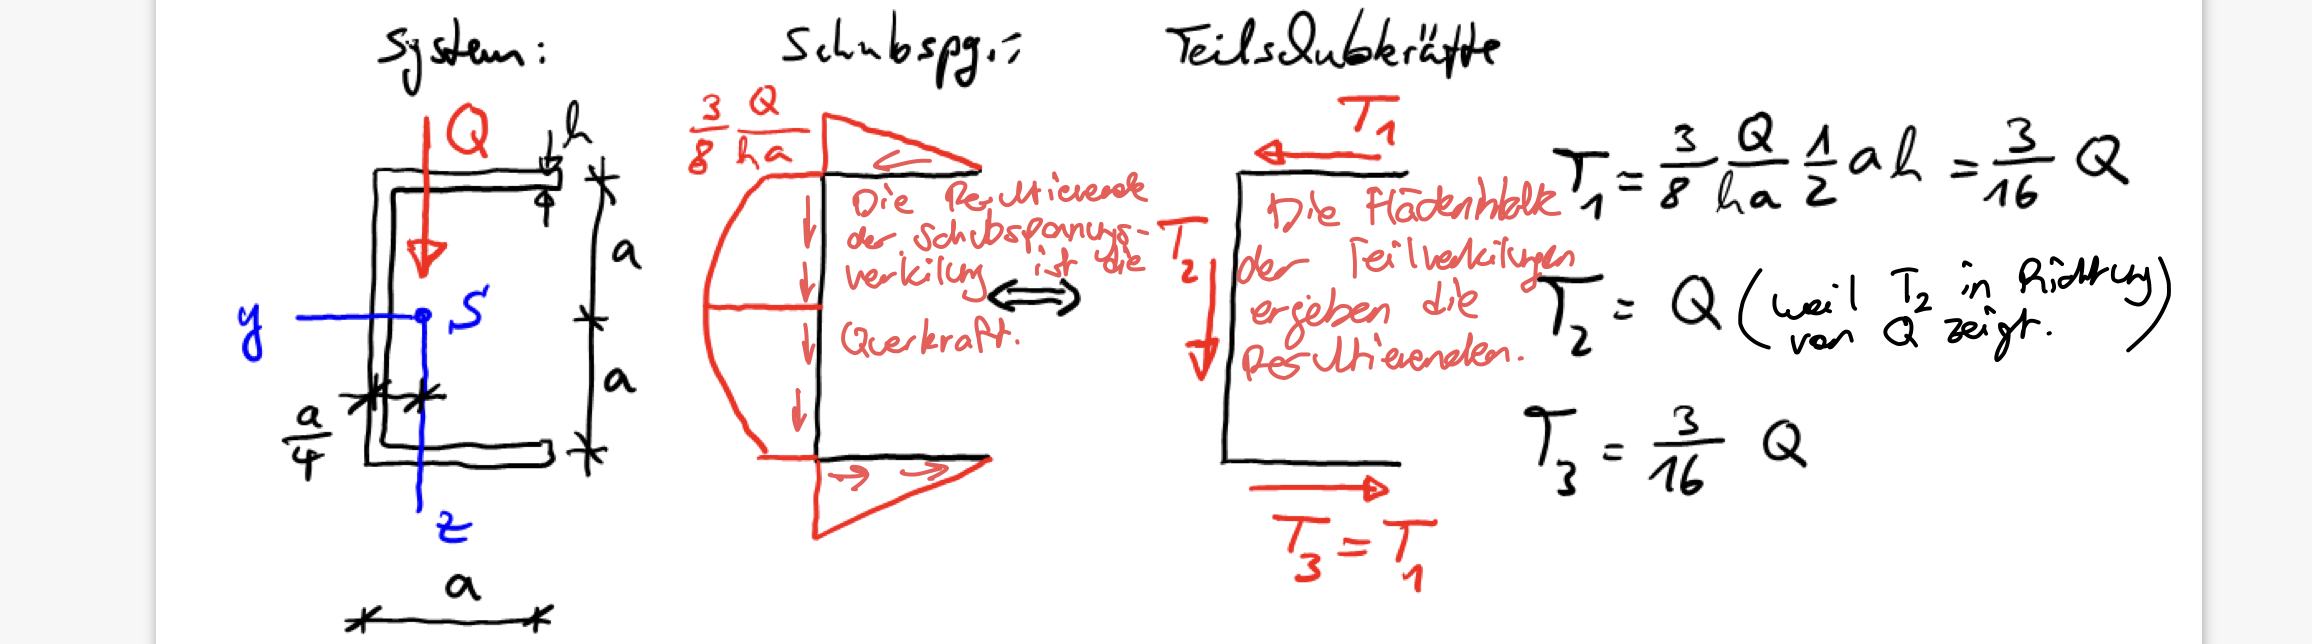 System:
Schubspg.:
Teilschubkräfte
Q
h
a
a
y
S
a/4
z
a
3/8 Q/ha
Die Resultierende
der Schubspannungs-
verteilung ist die
Querkraft.
T1
T2
Die Flächeninhalte
der Teilverteilungen
ergeben die
Resultierenden.
T3 = T1
T1 = 3/8 Q/ha 1/2 a h = 3/16 Q
T2 = Q (weil T2 in Richtung
von Q zeigt.)
T3 = 3/16 Q